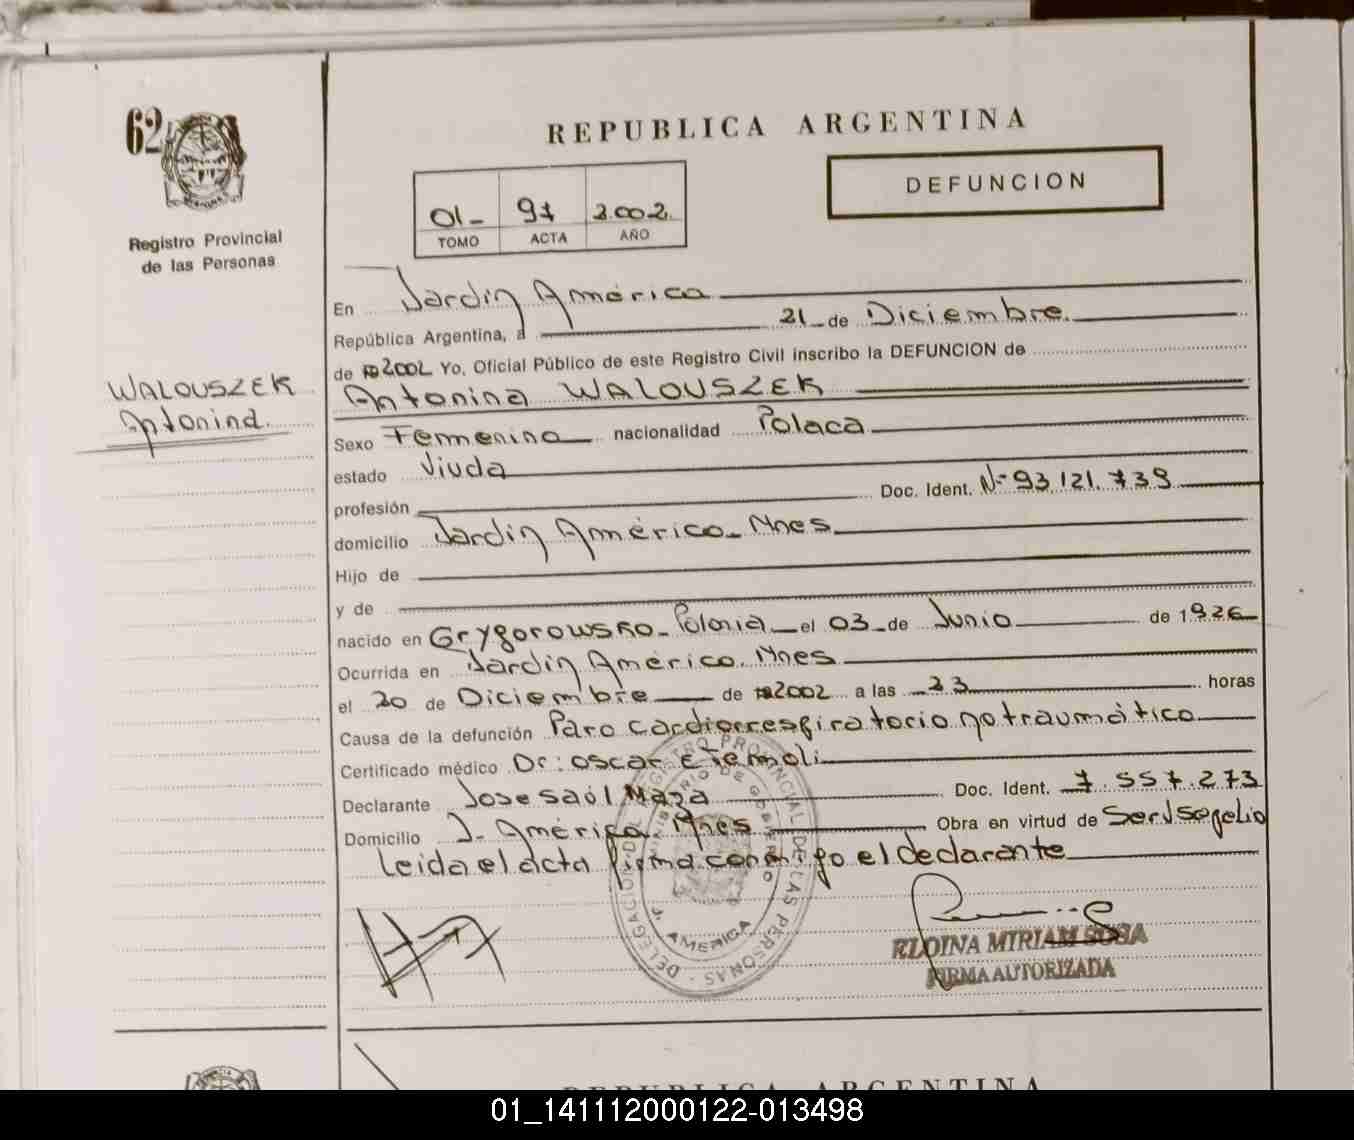 62
REPUBLICA ARGENTINA
DEFUNCION
01- 97 2.002.
TOMO ACTA AÑO
Registro Provincial
de las Personas
WALOUSZEK
Antonina.
En Jardín América
República Argentina, a 21 de Diciembre.
de 2002 Yo, Oficial Público de este Registro Civil inscribo la DEFUNCION de
Antonina WALOUSZEK
Sexo Femenino nacionalidad Polaca
estado Viuda
profesión Doc. Ident. Nº 93.121.739
domicilio Jardín América. Mnes
Hijo de
y de
nacido en Grygorowsko- Polonia el 03 de Junio de 1926
Ocurrida en Jardín América. Mnes
el 20 de Diciembre de 2002 a las 23 horas
Causa de la defunción Paro cardiorrespiratorio no traumático
Certificado médico Dr: Oscar
Declarante Jose Saúl Maza Doc. Ident. 7.557.273
Domicilio J. América. Mnes Obra en virtud de Serv sepelio
leida el acta firma conmigo el declarante
DELEGACION DEL REGISTRO PROVINCIAL DE LAS PERSONAS
MINISTERIO DE GOBIERNO
J. AMERICA
ELOINA MIRIAM SOSA
FIRMA AUTORIZADA
REPUBLICA ARGENTINA
01_141112000122-013498